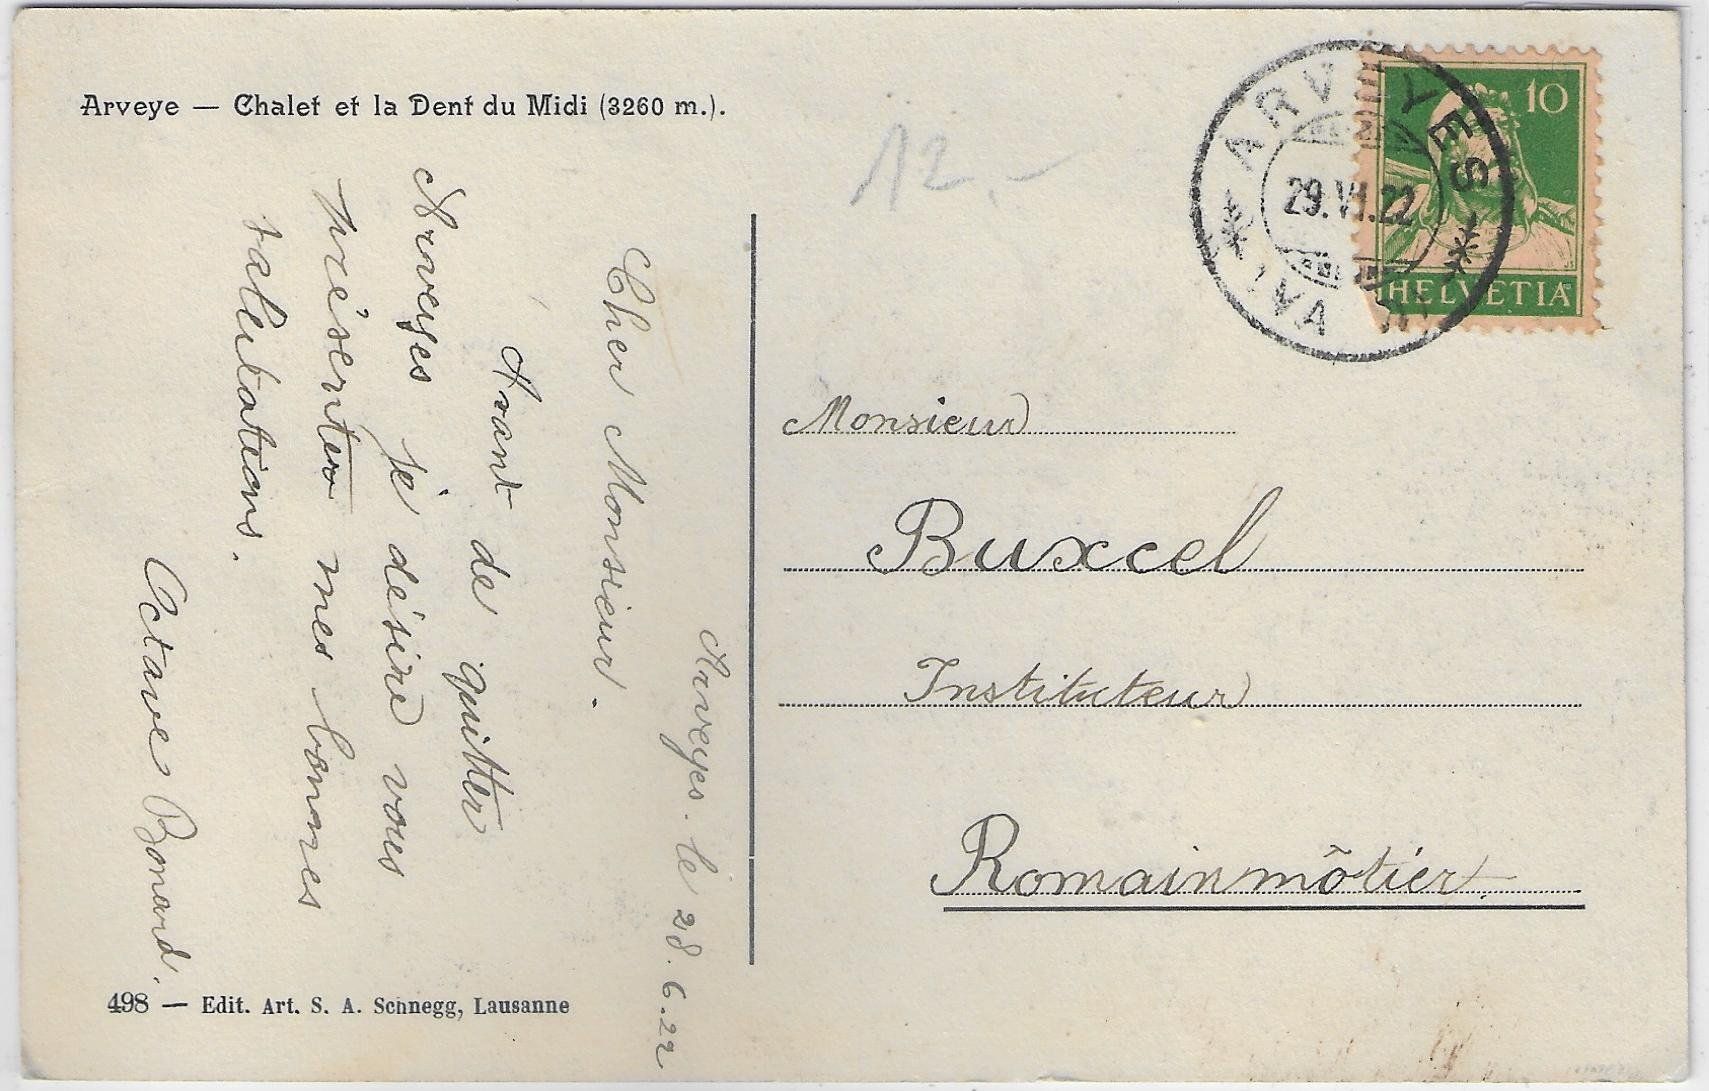 Arveye — Chalet et la Dent du Midi (3260 m.).
12.-
ARVEYES
29.VI.22
10
HELVETIA
Arveyes. le 28.6.22
Cher Monsieur.
Avant de quitter
Arveyes je désire vous
présenter mes bonnes
salutations.
Octave Bonard.
Monsieur
Buxcel
Instituteur
Romainmôtier
498 — Edit. Art. S. A. Schnegg, Lausanne